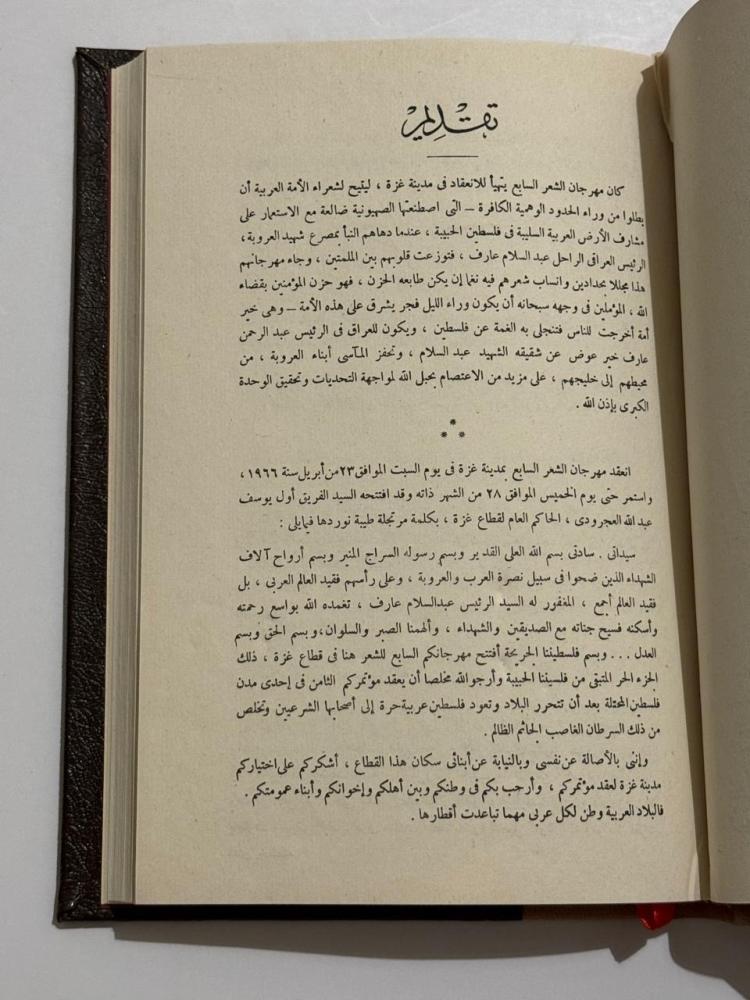 تقديم
كان مهرجان الشعر السابع يتهيأ للانعقاد فى مدينة غزة ، ليتيح لشعراء الأمة العربية أن
يطلوا من وراء الحدود الوهمية الكافرة – التى اصطنعتها الصهيونية ضالعة مع الاستعمار على
مشارف الأرض العربية السليبة فى فلسطين الحبيبة ، عندما دهاهم النبأ بمصرع شهيد العروبة،
الرئيس العراقى الراحل عبد السلام عارف ، فتوزعت قلوبهم بين الملمتين ، وجاء مهرجانهم
هذا مجللا بحدادين وانساب شعرهم فيه نغما إن يكن طابعه الحزن ، فهو حزن المؤمنين بقضاء
الله ، المؤملين فى وجهه سبحانه أن يكون وراء الليل فجر يشرق على هذه الأمة – وهى خير
أمة أخرجت للناس فتنجلى به الغمة عن فلسطين ، ويكون للعراق فى الرئيس عبد الرحمن
عارف خير عوض عن شقيقه الشهيد عبد السلام ، وتحفز المآسى أبناء العروبة ، من
محيطهم إلى خليجهم ، على مزيد من الاعتصام بحبل الله لمواجهة التحديات وتحقيق الوحدة
الكبرى بإذن الله .
* * *
انعقد مهرجان الشعر السابع بمدينة غزة فى يوم السبت الموافق ٢٣ من أبريل سنة ١٩٦٦ ،
واستمر حتى يوم الخميس الموافق ٢٨ من الشهر ذاته وقد افتتحه السيد الفريق أول يوسف
عبد الله العجرودى ، الحاكم العام لقطاع غزة ، بكلمة مرتجلة طيبة نوردها فيما يلى :
سيداتى . سادتى بسم الله العلى القدير وبسم رسوله السراج المنير وبسم أرواح آلاف
الشهداء الذين ضحوا فى سبيل نصرة العرب والعروبة ، وعلى رأسهم فقيد العالم العربى ، بل
فقيد العالم أجمع ، المغفور له السيد الرئيس عبدالسلام عارف ، تغمده الله بواسع رحمته
وأسكنه فسيح جناته مع الصديقين والشهداء ، وألهمنا الصبر والسلوان، وبسم الحق وبسم
العدل ... وبسم فلسطيننا الجريحة أفتتح مهرجانكم السابع للشعر هنا فى قطاع غزة ، ذلك
الجزء الحر المتبقى من فلسيننا الحبيبة وأرجو الله مخلصا أن يعقد مؤتمركم الثامن فى إحدى مدن
فلسطين المحتلة بعد أن تتحرر البلاد وتعود فلسطين عربية حرة إلى أصحابها الشرعيين وتخلص
من ذلك السرطان الغاصب الجاثم الظالم .
وإننى بالأصالة عن نفسى وبالنيابة عن أبنائى سكان هذا القطاع ، أشكركم على اختياركم
مدينة غزة لعقد مؤتمركم ، وأرحب بكم فى وطنكم وبين أهلكم وإخوانكم وأبناء عمومتكم .
فالبلاد العربية وطن لكل عربى مهما تباعدت أقطارها .